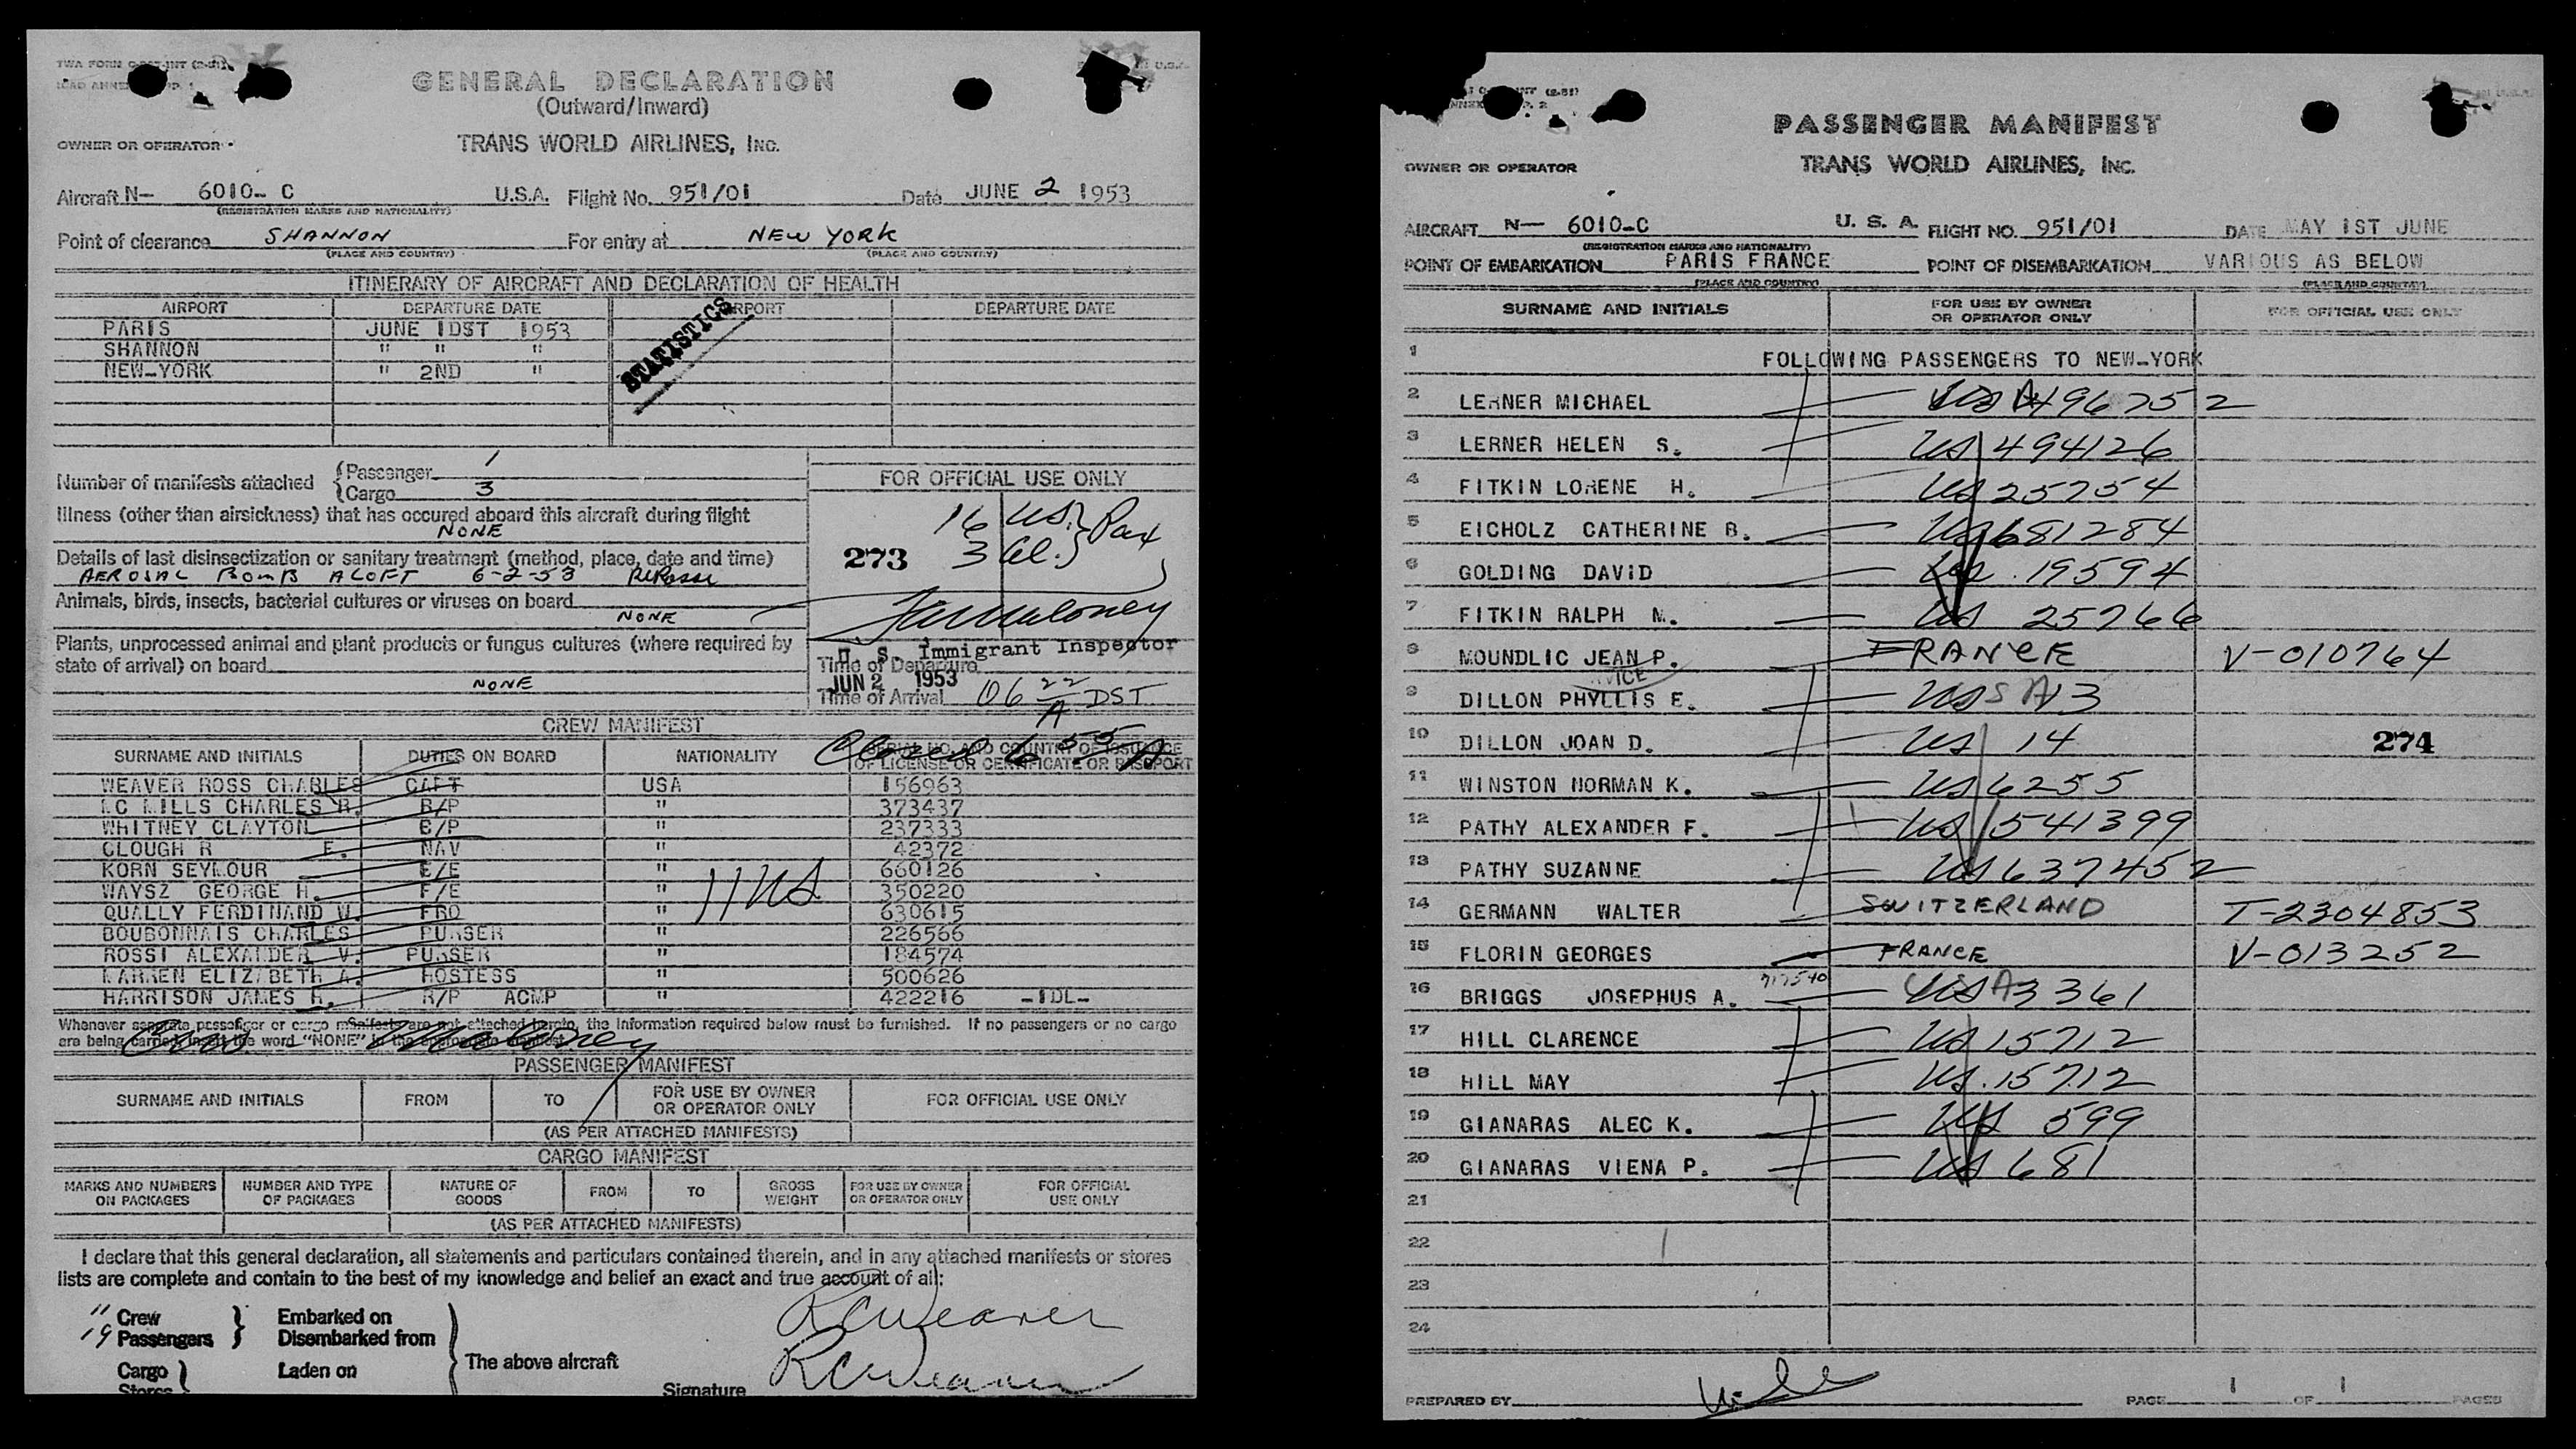 GENERAL DECLARATION
(Outward/Inward)
TRANS WORLD AIRLINES, INC.
OWNER OR OPERATOR
Aircraft N- 6010- C U.S.A. Flight No. 951/01 Date JUNE 2 1953
(REGISTRATION MARKS AND NATIONALITY)
Point of clearance SHANNON For entry at NEW YORK
(PLACE AND COUNTRY) (PLACE AND COUNTRY)
ITINERARY OF AIRCRAFT AND DECLARATION OF HEALTH
AIRPORT DEPARTURE DATE AIRPORT DEPARTURE DATE
PARIS JUNE 1DST 1953
STATISTICS
SHANNON " " "
NEW-YORK " 2ND "
Number of manifests attached
Passenger 1
Cargo 3
FOR OFFICIAL USE ONLY
Illness (other than airsickness) that has occured aboard this aircraft during flight
NONE
16 US. } Pax
273 3 al.
Details of last disinsectization or sanitary treatment (method, place, date and time)
AEROSAL BOMB ALOFT 6-2-53
Animals, birds, insects, bacterial cultures or viruses on board
NONE
Plants, unprocessed animal and plant products or fungus cultures (where required by
state of arrival) on board
NONE
U. S. Immigrant Inspector
Time of Departure
JUN 2 1953
Time of Arrival 06 22 A DST
CREW MANIFEST
SURNAME AND INITIALS DUTIES ON BOARD NATIONALITY SERIAL NO. AND COUNTRY OF ISSUANCE
OF LICENSE OR CERTIFICATE OR PASSPORT
WEAVER ROSS CHARLES CAPT USA 156963
MC MILLS CHARLES R. R/P " 373437
WHITNEY CLAYTON C/P " 237333
CLOUGH R E. NAV " 42372
KORN SEYMOUR E/E " 660126
WAYSZ GEORGE H. F/E " 350220
11 US
QUALLY FERDINAND W. FRO " 630615
BOUBONNAIS CHARLES PURSER " 226566
ROSSI ALEXANDER V. PURSER " 184574
LARSEN ELIZABETH A. HOSTESS " 500626
HARRISON JAMES R. R/P ACMP " 422216 -IDL-
Whenever separate passenger or cargo manifests are not attached hereto, the information required below must be furnished. If no passengers or no cargo
are being carried, insert the word "NONE" in the appropriate manifest.
PASSENGER MANIFEST
SURNAME AND INITIALS FROM TO FOR USE BY OWNER OR OPERATOR ONLY FOR OFFICIAL USE ONLY
(AS PER ATTACHED MANIFESTS)
CARGO MANIFEST
MARKS AND NUMBERS ON PACKAGES NUMBER AND TYPE OF PACKAGES NATURE OF GOODS FROM TO GROSS WEIGHT FOR USE BY OWNER OR OPERATOR ONLY FOR OFFICIAL USE ONLY
(AS PER ATTACHED MANIFESTS)
I declare that this general declaration, all statements and particulars contained therein, and in any attached manifests or stores
lists are complete and contain to the best of my knowledge and belief an exact and true account of all:
11 Crew Embarked on
19 Passengers Disembarked from
RCWeaver
The above aircraft
Cargo Laden on
Stores
Signature RCWeaver
PASSENGER MANIFEST
OWNER OR OPERATOR TRANS WORLD AIRLINES, INC.
AIRCRAFT N- 6010-C U. S. A. FLIGHT NO. 951/01 DATE MAY 1ST JUNE
(REGISTRATION MARKS AND NATIONALITY)
POINT OF EMBARKATION PARIS FRANCE POINT OF DISEMBARKATION VARIOUS AS BELOW
(PLACE AND COUNTRY) (PLACE AND COUNTRY)
SURNAME AND INITIALS FOR USE BY OWNER OR OPERATOR ONLY FOR OFFICIAL USE ONLY
1 FOLLOWING PASSENGERS TO NEW-YORK
2 LERNER MICHAEL USA 496752
3 LERNER HELEN S. US 494126
4 FITKIN LORENE H. US 25754
5 EICHOLZ CATHERINE B. US 681284
6 GOLDING DAVID US. 19594
7 FITKIN RALPH M. US 25766
8 MOUNDLIC JEAN P. FRANCE V-010764
9 DILLON PHYLLIS E. USSA 13
10 DILLON JOAN D. US 14 274
11 WINSTON NORMAN K. US 6255
12 PATHY ALEXANDER F. US 541399
13 PATHY SUZANNE US 637452
14 GERMANN WALTER SWITZERLAND T-2304853
15 FLORIN GEORGES FRANCE V-013252
16 BRIGGS JOSEPHUS A. 717540 USA 3361
17 HILL CLARENCE US 15712
18 HILL MAY US. 15712
19 GIANARAS ALEC K. US 599
20 GIANARAS VIENA P. US 681
21
22
23
24
PREPARED BY
PAGE 1 OF 1 PAGES